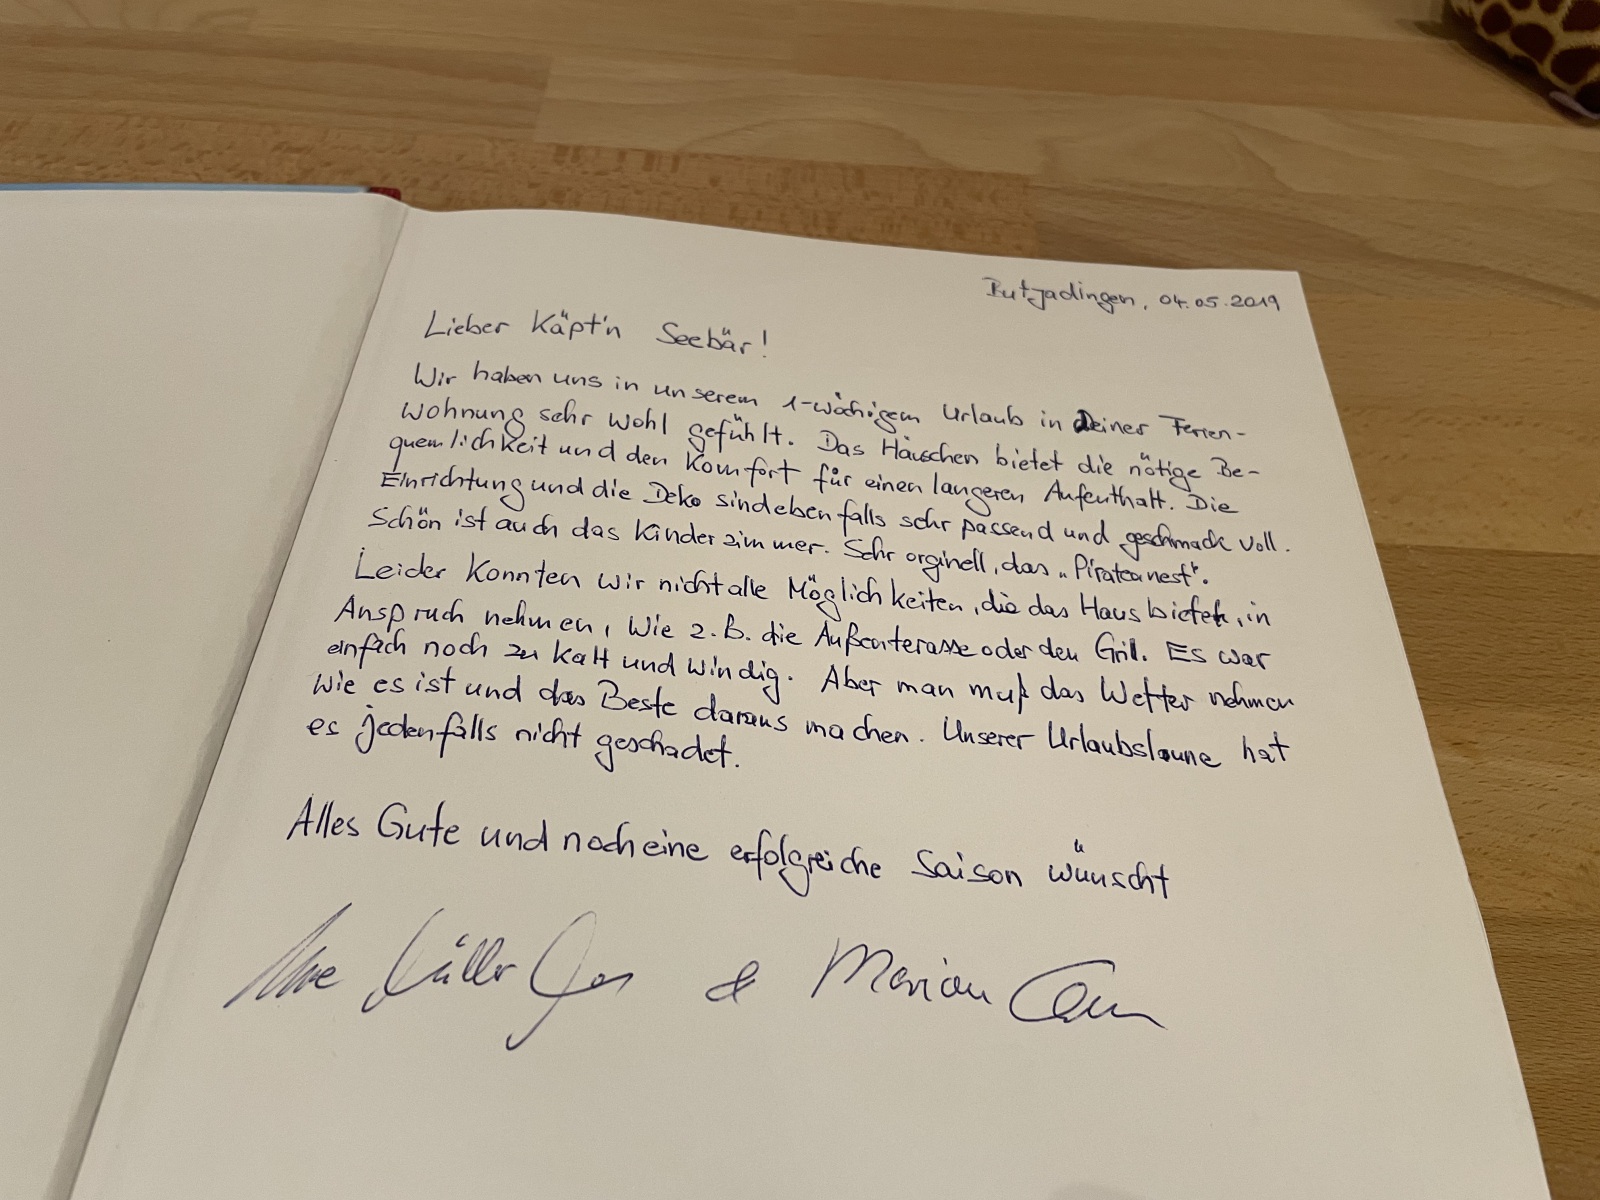 Butjadingen, 04.05.2019
Lieber Käpt'n Seebär!
Wir haben uns in unserem 1-wöchigem Urlaub in Deiner Ferien-
wohnung sehr wohl gefühlt. Das Häuschen bietet die nötige Be-
quemlichkeit und den Komfort für einen längeren Aufenthalt. Die
Einrichtung und die Deko sind ebenfalls sehr passend und geschmackvoll.
Schön ist auch das Kinderzimmer. Sehr orginell, das „Piratennest".
Leider konnten wir nicht alle Möglichkeiten, die das Haus bietet, in
Anspruch nehmen, wie z.B. die Außenterasse oder den Grill. Es war
einfach noch zu kalt und windig. Aber man muß das Wetter nehmen
wie es ist und das Beste daraus machen. Unserer Urlaubslaune hat
es jedenfalls nicht geschadet.
Alles Gute und noch eine erfolgreiche Saison wünscht
Uwe & Marian